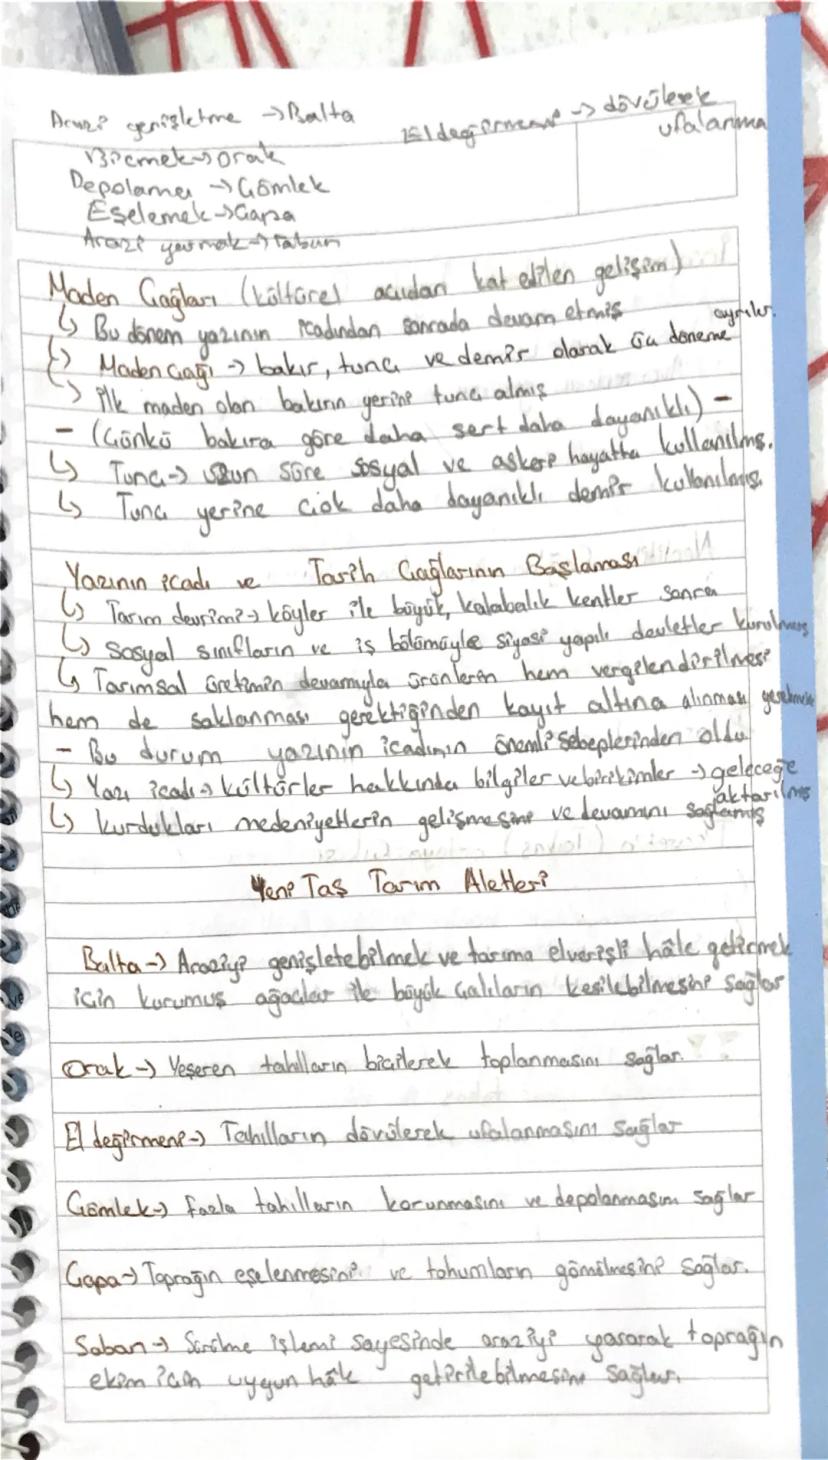 Arazi genişletme → Balta
El değirmeni → dövülerek
ufalanma
Biçmek → orak
Depolama → Gömlek
Eşelemek → Çapa
Arazi yarmak → Saban
Maden Çağları (kültürel açıdan kat edilen gelişim)
↳ Bu dönem yazının icadından sonrada devam etmiş
↳ Maden çağı → bakır, tunç ve demir olarak üç döneme ayrılır.
↳ İlk maden olan bakırın yerini tunç almış
- (Çünkü bakıra göre daha sert daha dayanıklı) -
↳ Tunç → uzun süre sosyal ve askeri hayatta kullanılmış.
↳ Tunç yerine çok daha dayanıklı demir kullanılmış.
Yazının icadı ve Tarih Çağlarının Başlaması
↳ Tarım devrimi → köyler ile büyük, kalabalık kentler sonra
↳ Sosyal sınıfların ve iş bölümüyle siyasi yapılı devletler kurulmuş
↳ Tarımsal üretimin devamıyla ürünlerin hem vergilendirilmesi
hem de saklanması gerektiğinden kayıt altına alınması
- Bu durum yazının icadının önemli sebeplerinden oldu
↳ Yazı icadı → kültürler hakkında bilgiler ve birikimler → geleceğe
aktarılmış
↳ kurdukları medeniyetlerin gelişmesini ve devamını sağlamış
Yeni Taş Tarım Aletleri
Balta → Araziyi genişletebilmek ve tarıma elverişli hâle getirmek
için kurumuş ağaçlar ile büyük çalıların kesilebilmesini sağlar
Orak → Yeşeren tahılların biçilerek toplanmasını sağlar.
El değirmeni → Tahılların dövülerek ufalanmasını sağlar
Gömlek → fazla tahılların korunmasını ve depolanmasını sağlar
Çapa → Toprağın eşelenmesini ve tohumların gömülmesini sağlar.
Saban → Sürülme işlemi sayesinde araziyi yararak toprağın
ekim için uygun hâle getirilebilmesini sağlar.